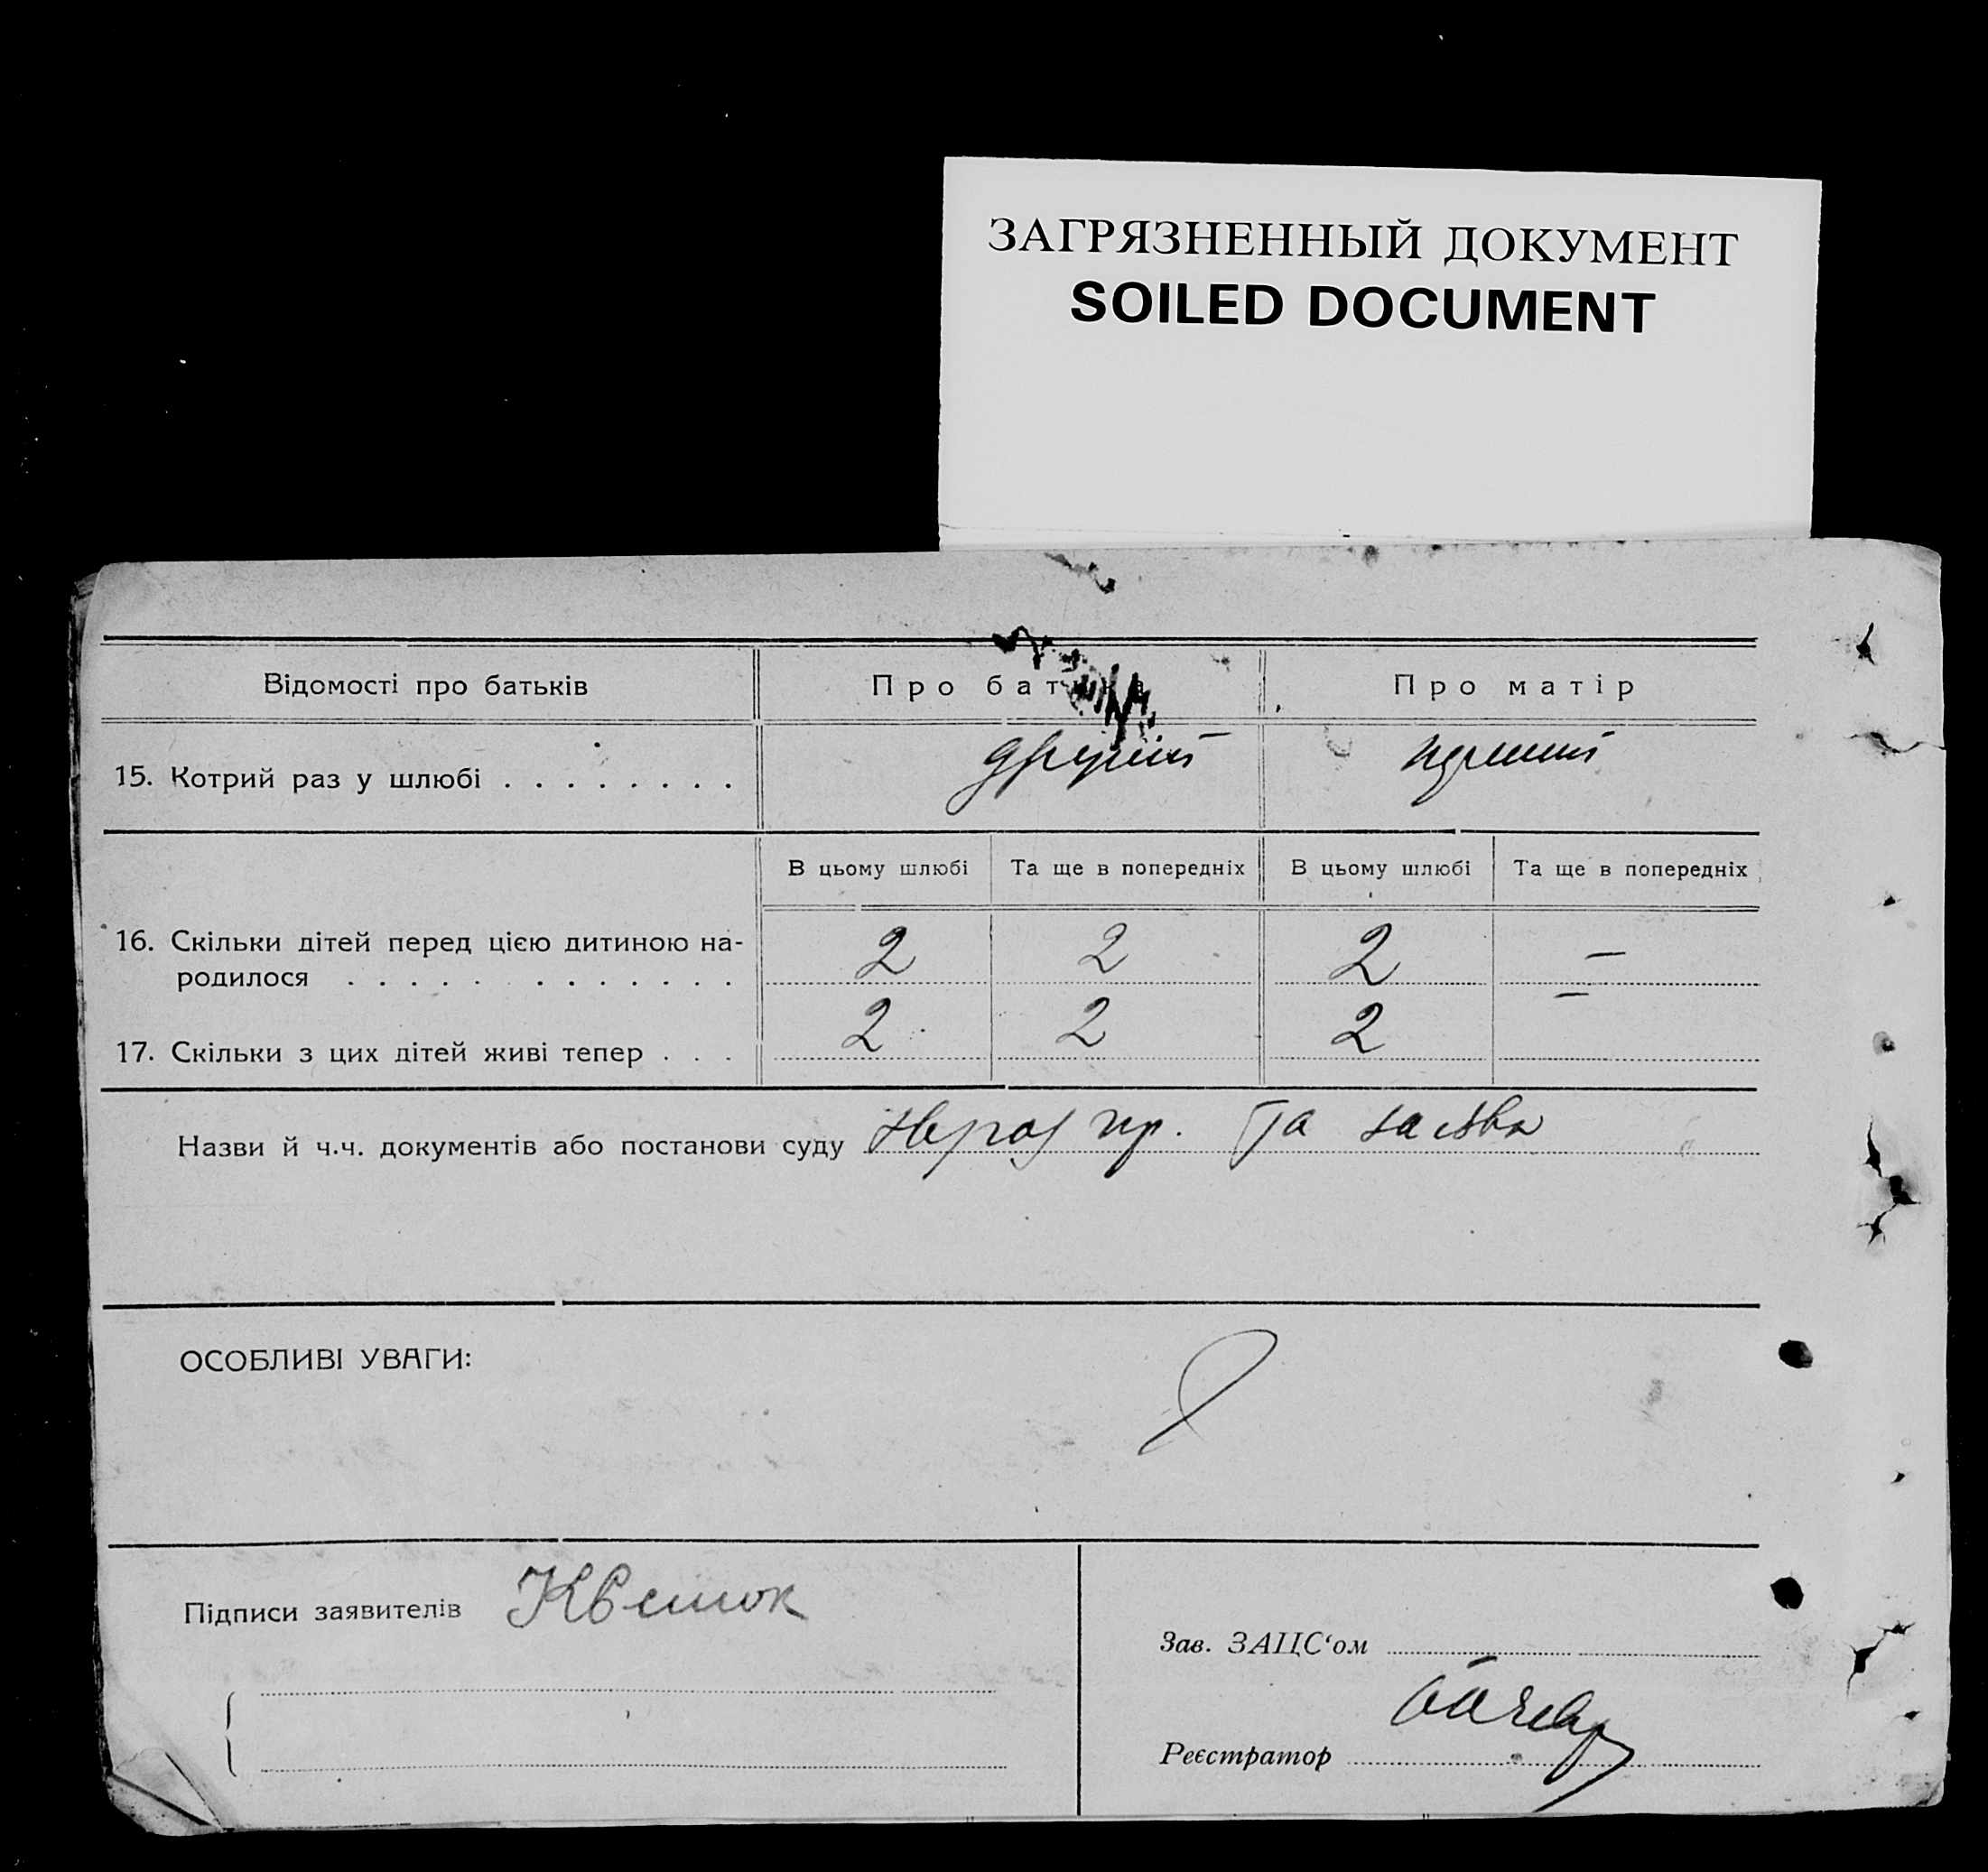 ЗАГРЯЗНЕННЫЙ ДОКУМЕНТ
SOILED DOCUMENT
Відомості про батьків Про батька Про матір
15. Котрий раз у шлюбі . . . . . . . . другий перший
В цьому шлюбі Та ще в попередніх В цьому шлюбі Та ще в попередніх
16. Скільки дітей перед цією дитиною на-
родилося . . . . . . . . . . . . 2 2 2 –
17. Скільки з цих дітей живі тепер . . . 2 2 2 –
Назви й ч.ч. документів або постанови суду пр. та заява
ОСОБЛИВІ УВАГИ:
Підписи заявителів
Зав. ЗАЦС‘ом
Реєстратор